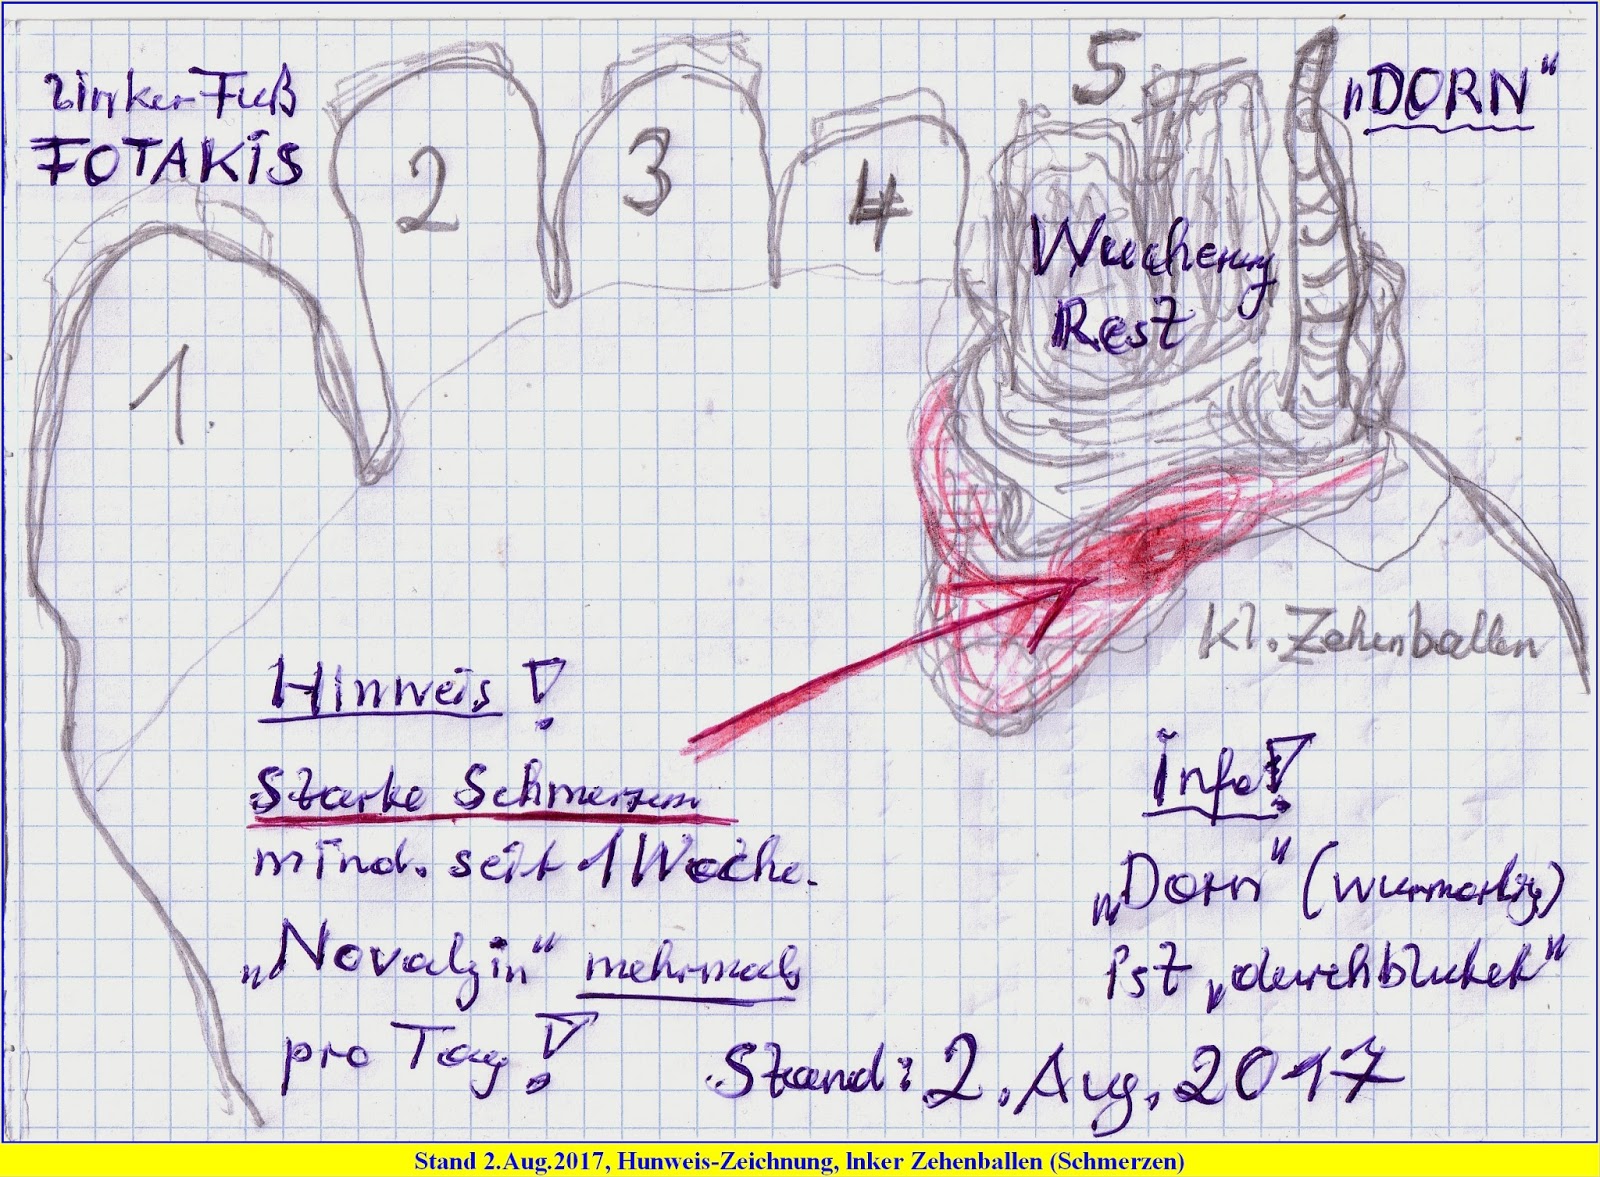 linker Fuß
FOTAKIS
1.
2
3
4
5
„DORN“
Wucherung
Rest
kl. Zehenballen
Hinweis!
Starke Schmerzen
mind. seit 1 Woche.
„Novalgin“ mehrmals
pro Tag!
Info!
„Dorn“ (wurmartig)
ist „durchblutet“
Stand: 2. Aug. 2017
Stand 2.Aug.2017, Hunweis-Zeichnung, lnker Zehenballen (Schmerzen)